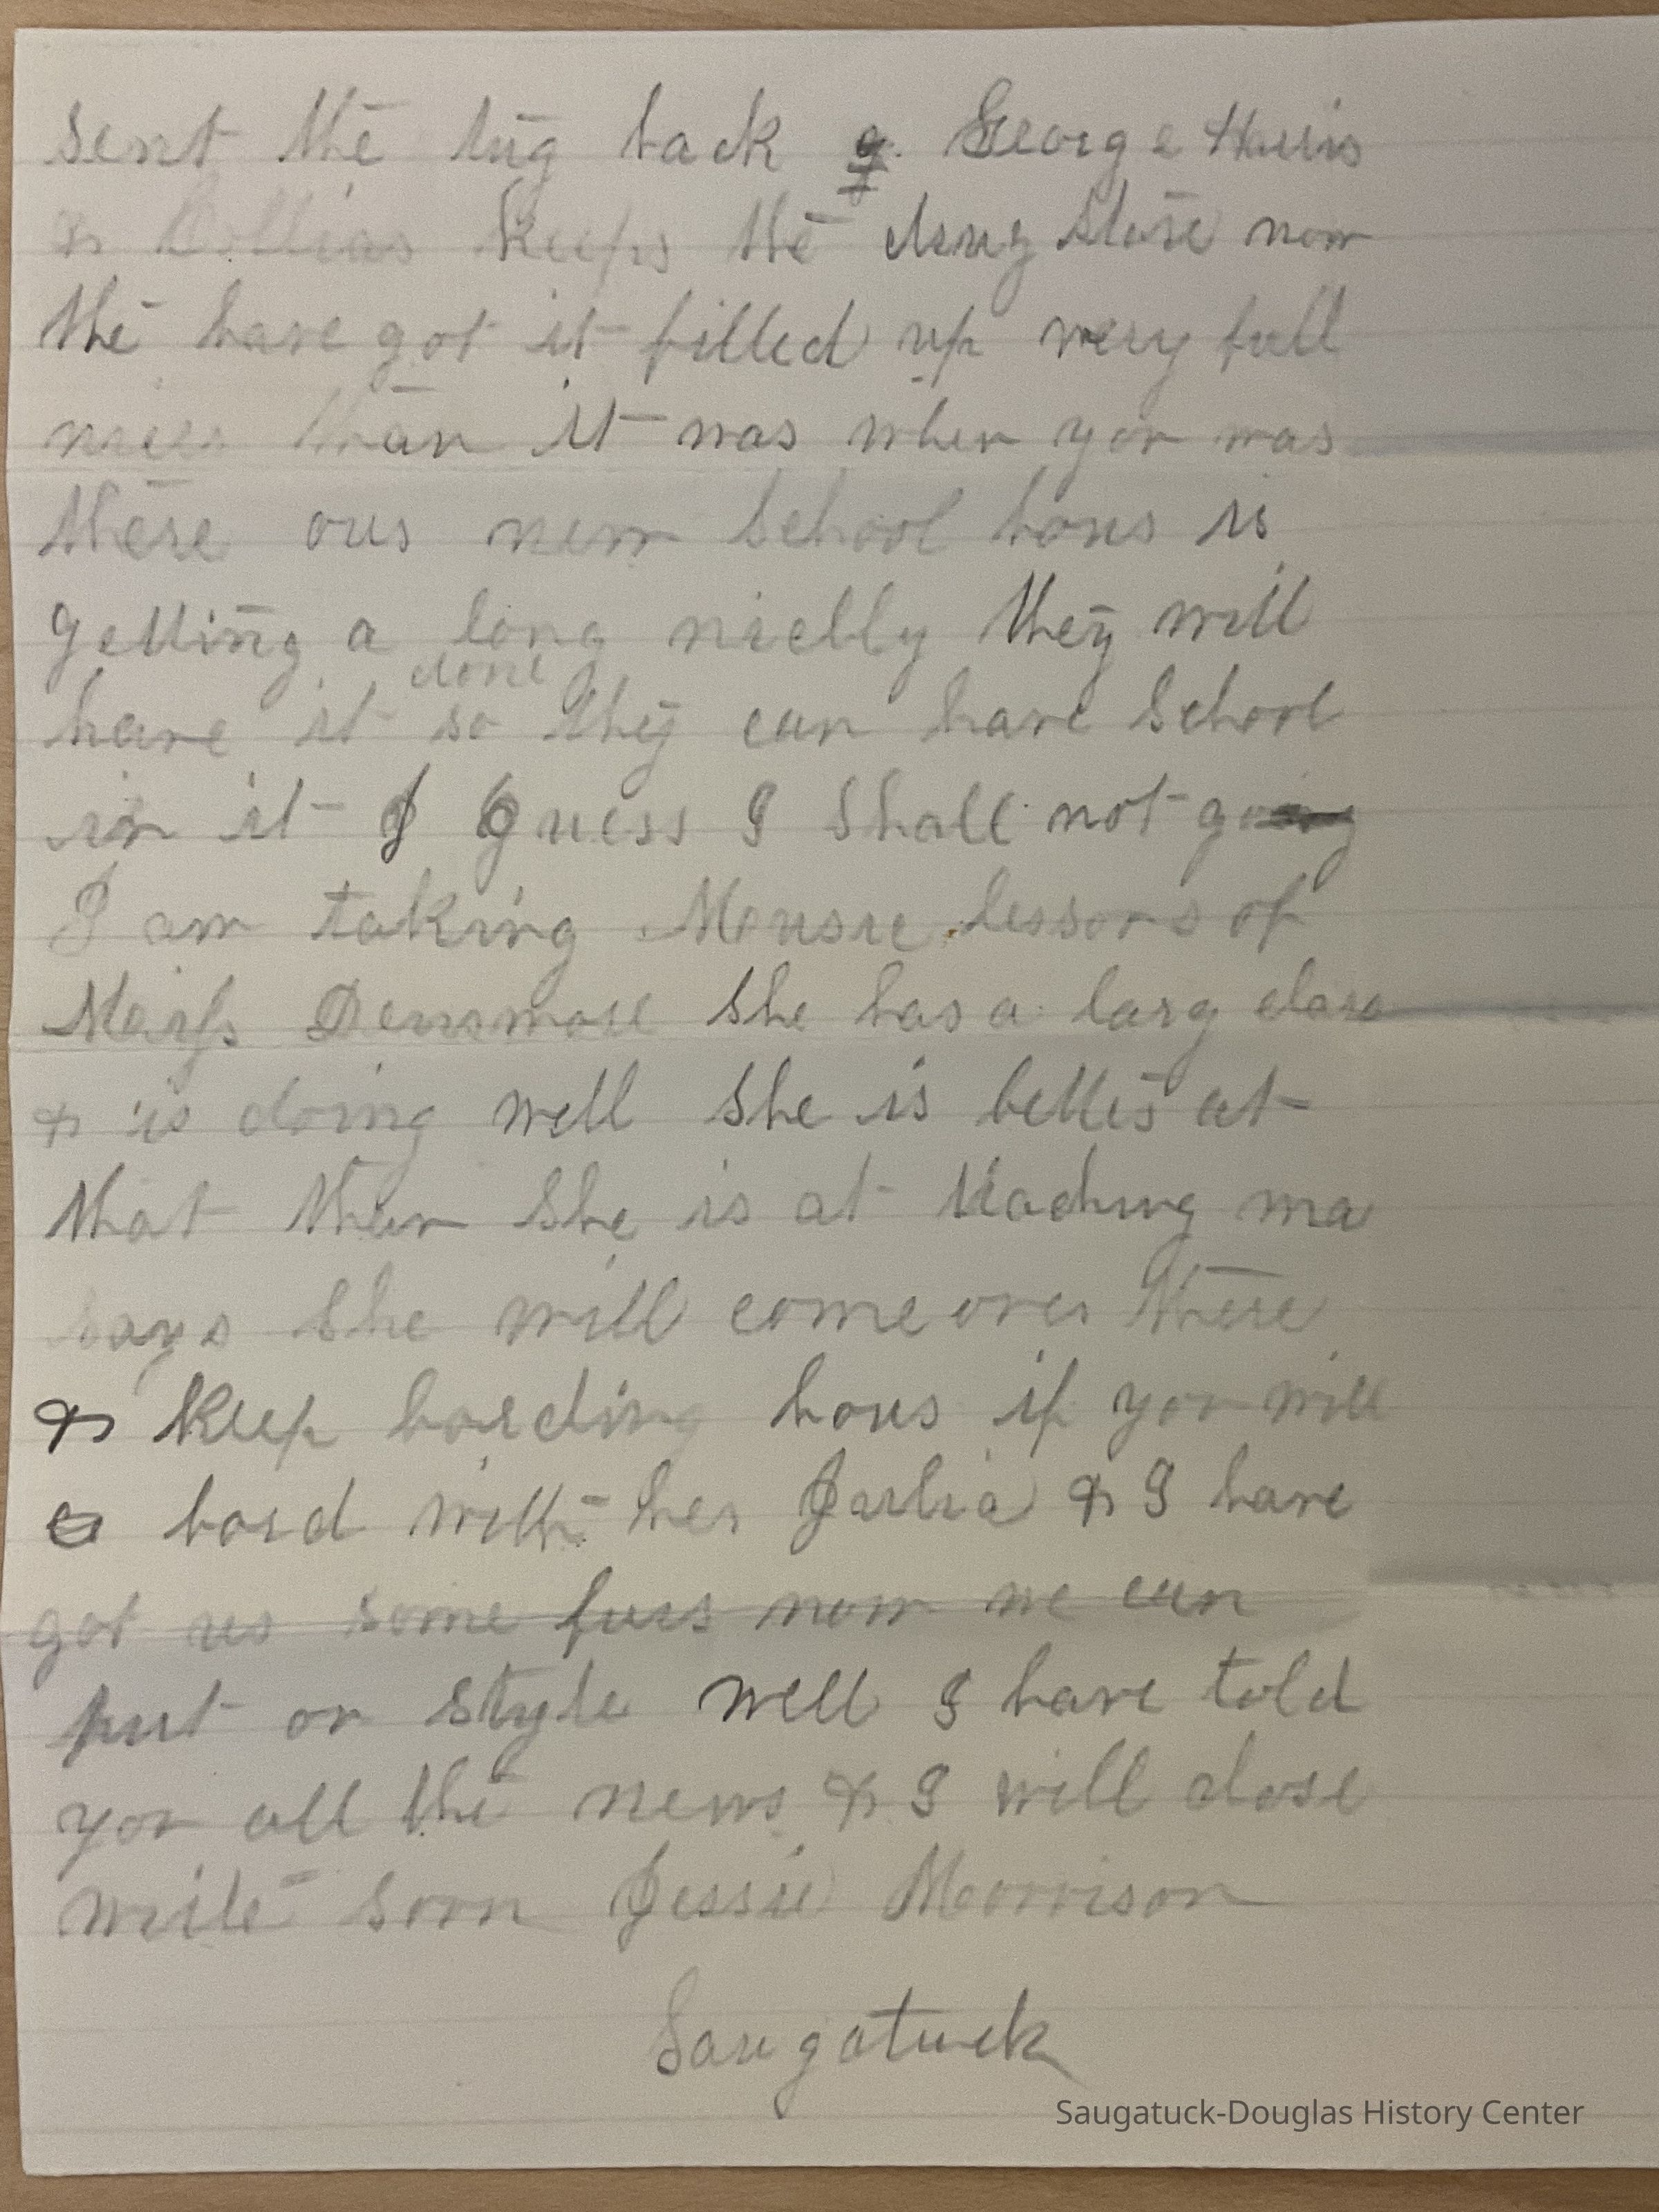 sent the tug back g. George Harris
& Collias Keeps the drug store now
the have got it filled up very full
nicer than it was when you was
there our new school hous is
getting a long nicelly they will
have it done so they can have school
in it I Guess I shall not go
I am taking Mousic lessons of
Marss Densmore she has a larg class
& is doing well she is better at
that than she is at teaching ma
says she will come over there
& Keep boarding hous if you will
bord with her Jarlia & I have
got us some furs now we can
put on style well I have told
you all the news & I will close
write soon Jessie Morrison
Saugatuck
Saugatuck-Douglas History Center